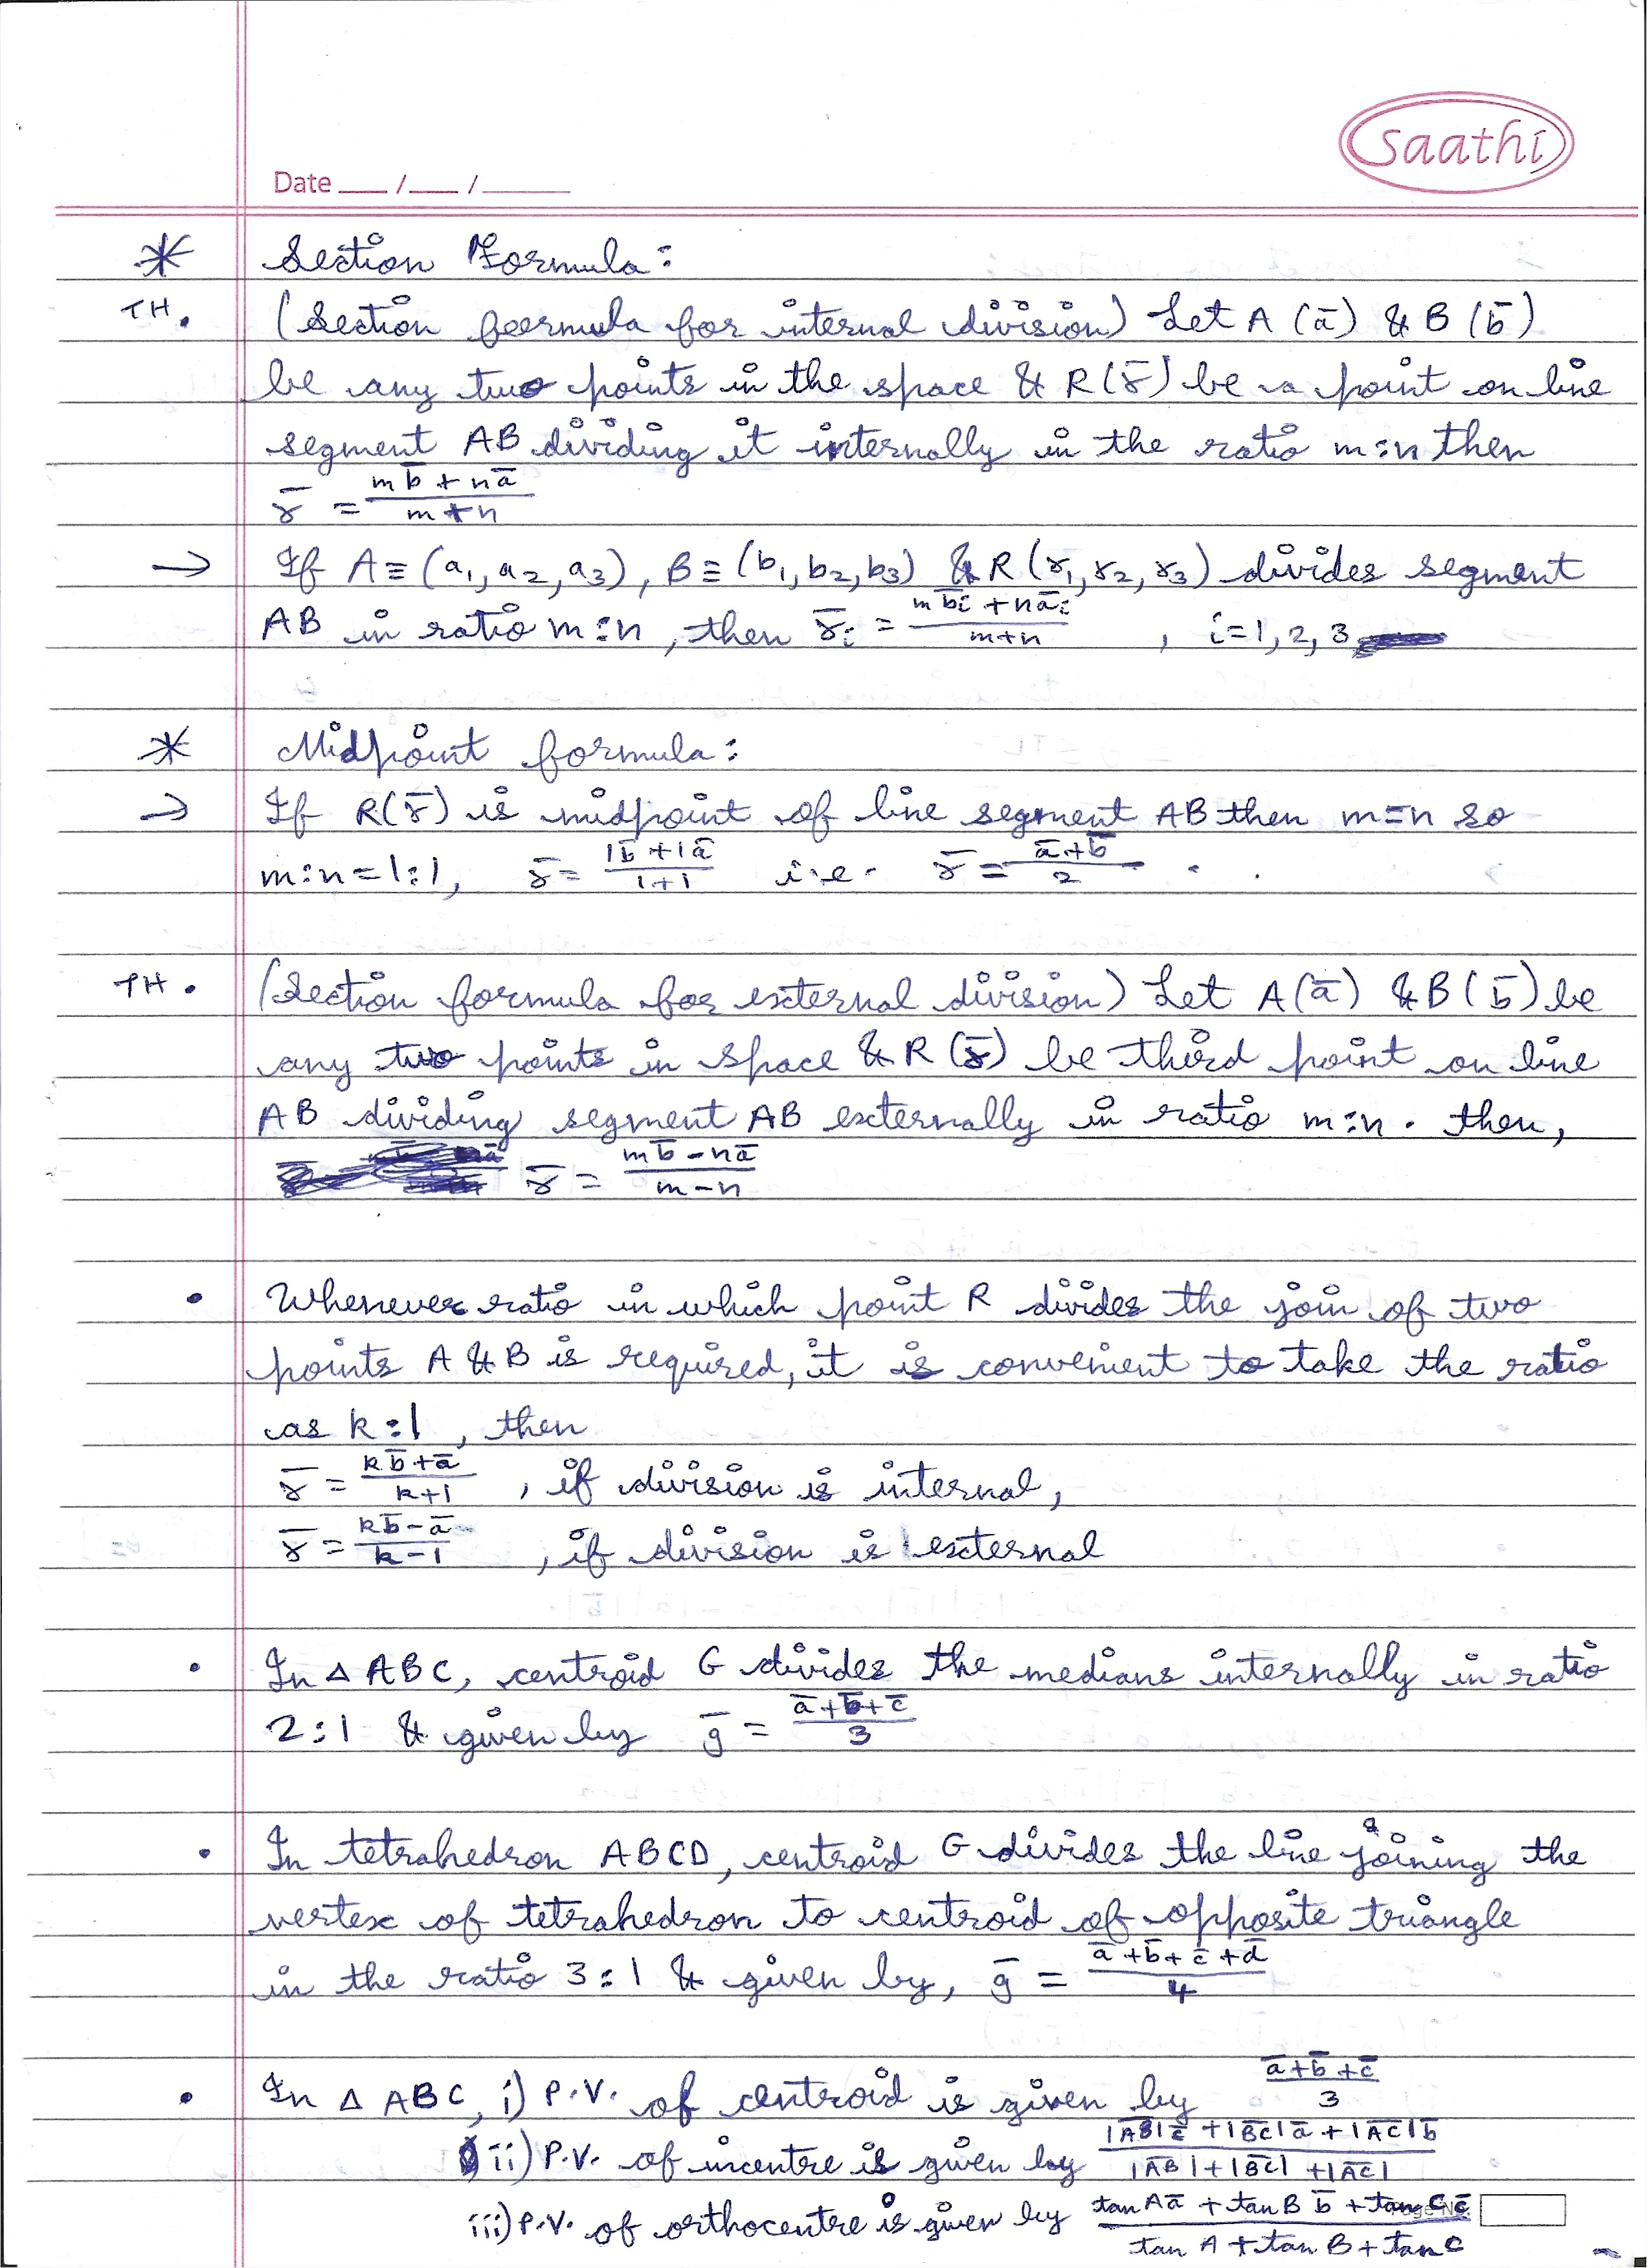 saathi
Date ___/___/______
* Section Formula:
TH. (Section formula for internal division) Let A (ā) & B (b̄)
be any two points in the space & R(r̄) be a point on line
segment AB dividing it internally in the ratio m:n then
r̄ = (mb̄ + nā)/(m+n)
→ If A ≡ (a₁, a₂, a₃), B ≡ (b₁, b₂, b₃) & R (r₁, r₂, r₃) divides segment
AB in ratio m:n, then r̄ᵢ = (mb̄ᵢ + nāᵢ)/(m+n) , i=1, 2, 3
* Midpoint formula:
→ If R(r̄) is midpoint of line segment AB then m=n so
m:n=1:1, r̄ = (1b̄ + 1ā)/(1+1) i.e. r̄ = (ā+b̄)/2 .
TH. (Section formula for external division) Let A(ā) & B(b̄) be
any two points in space & R (r̄) be third point on line
AB dividing segment AB externally in ratio m:n. then,
r̄ = (mb̄ - nā)/(m-n)
• Whenever ratio in which point R divides the join of two
points A & B is required, it is convenient to take the ratio
as k:1, then
r̄ = (kb̄+ā)/(k+1) , if division is internal,
r̄ = (kb̄-ā)/(k-1) , if division is external
• In △ ABC, centroid G divides the medians internally in ratio
2:1 & given by ḡ = (ā+b̄+c̄)/3
• In tetrahedron ABCD, centroid G divides the line joining the
vertex of tetrahedron to centroid of opposite triangle
in the ratio 3:1 & given by, ḡ = (ā+b̄+c̄+d̄)/4
• In △ ABC, i) P.V. of centroid is given by (ā+b̄+c̄)/3
ii) P.V. of incentre is given by (|A̅B̅|c̄ + |B̅C̅|ā + |A̅C̅|b̄)/(|A̅B̅|+|B̅C̅|+|A̅C̅|)
iii) P.V. of orthocentre is given by (tan A ā + tan B b̄ + tan C c̄)/(tan A + tan B + tan C)
Page No.